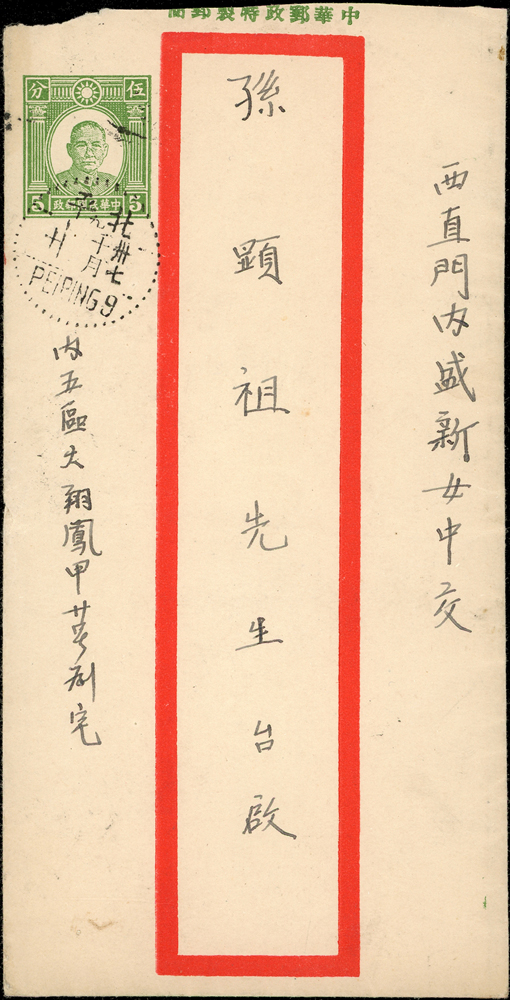 中華郵政特製郵簡
西直門內盛新女中交
孫顯祖先生台啟
內五區大翔鳳甲廿号刘宅
伍分
壹 壹
5 中華民國郵政 5
北平
廿七
九十月
廿
PEIPING 9